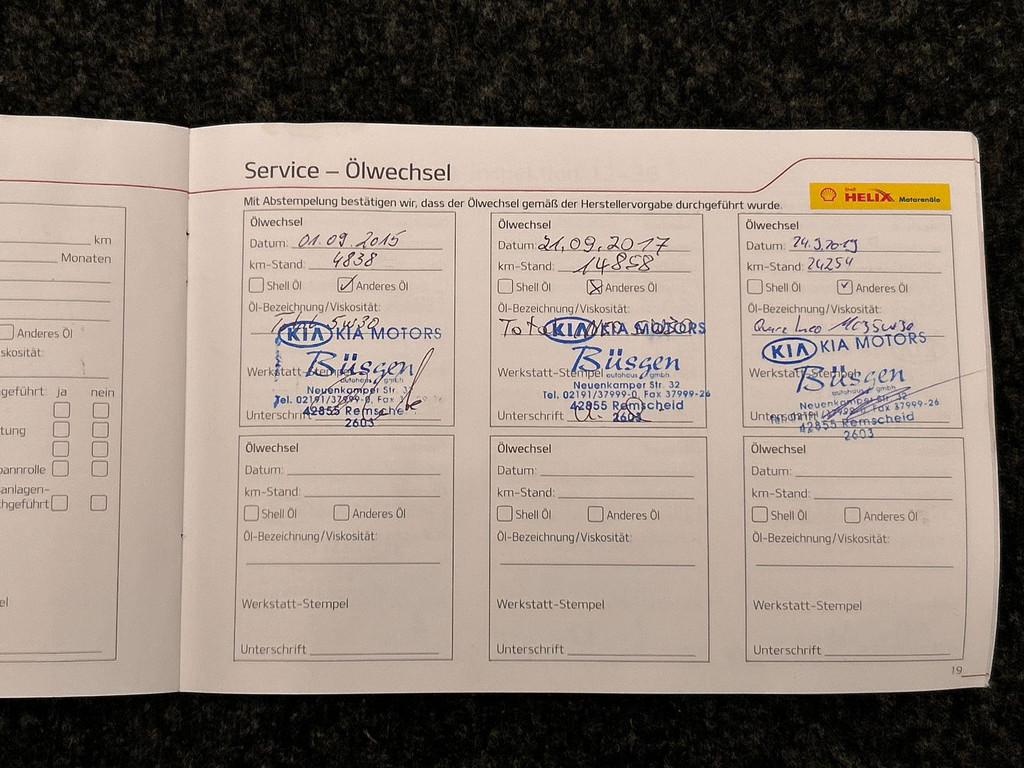 km
Monaten
Anderes Öl
skosität:
geführt: ja nein
tung
pannrolle
anlagen-
hgeführt
el
Service – Ölwechsel
Mit Abstempelung bestätigen wir, dass der Ölwechsel gemäß der Herstellervorgabe durchgeführt wurde.
Shell
HELIX Motorenöle
Ölwechsel
Datum: 01.09.2015
km-Stand: 4838
Shell Öl Anderes Öl
Öl-Bezeichnung/Viskosität:
5W30
KIA KIA MOTORS
Büsgen
autohaus gmbh
Werkstatt-Stempel
Neuenkamper Str. 32
Tel. 02191/37999-0, Fax 3
42855 Remsche
Unterschrift
2603
Ölwechsel
Datum: 21.09.2017
km-Stand: 14858
Shell Öl Anderes Öl
Öl-Bezeichnung/Viskosität:
KIA KIA MOTORS
Büsgen
autohaus gmbh
Werkstatt-Stempel
Neuenkamper Str. 32
Tel. 02191/37999-0, Fax 37999-26
42855 Remscheid
Unterschrift
2603
Ölwechsel
Datum: 24.9.2019
km-Stand: 24254
Shell Öl Anderes Öl
Öl-Bezeichnung/Viskosität:
5W30
KIA KIA MOTORS
Büsgen
autohaus gmbh
Werkstatt-Stempel
Neuenkamper Str. 32
Tel. 02191/37999-0, Fax 37999-26
42855 Remscheid
Unterschrift
2603
Ölwechsel
Datum:
km-Stand:
Shell Öl Anderes Öl
Öl-Bezeichnung/Viskosität:
Werkstatt-Stempel
Unterschrift
Ölwechsel
Datum:
km-Stand:
Shell Öl Anderes Öl
Öl-Bezeichnung/Viskosität:
Werkstatt-Stempel
Unterschrift
Ölwechsel
Datum:
km-Stand:
Shell Öl Anderes Öl
Öl-Bezeichnung/Viskosität:
Werkstatt-Stempel
Unterschrift
19